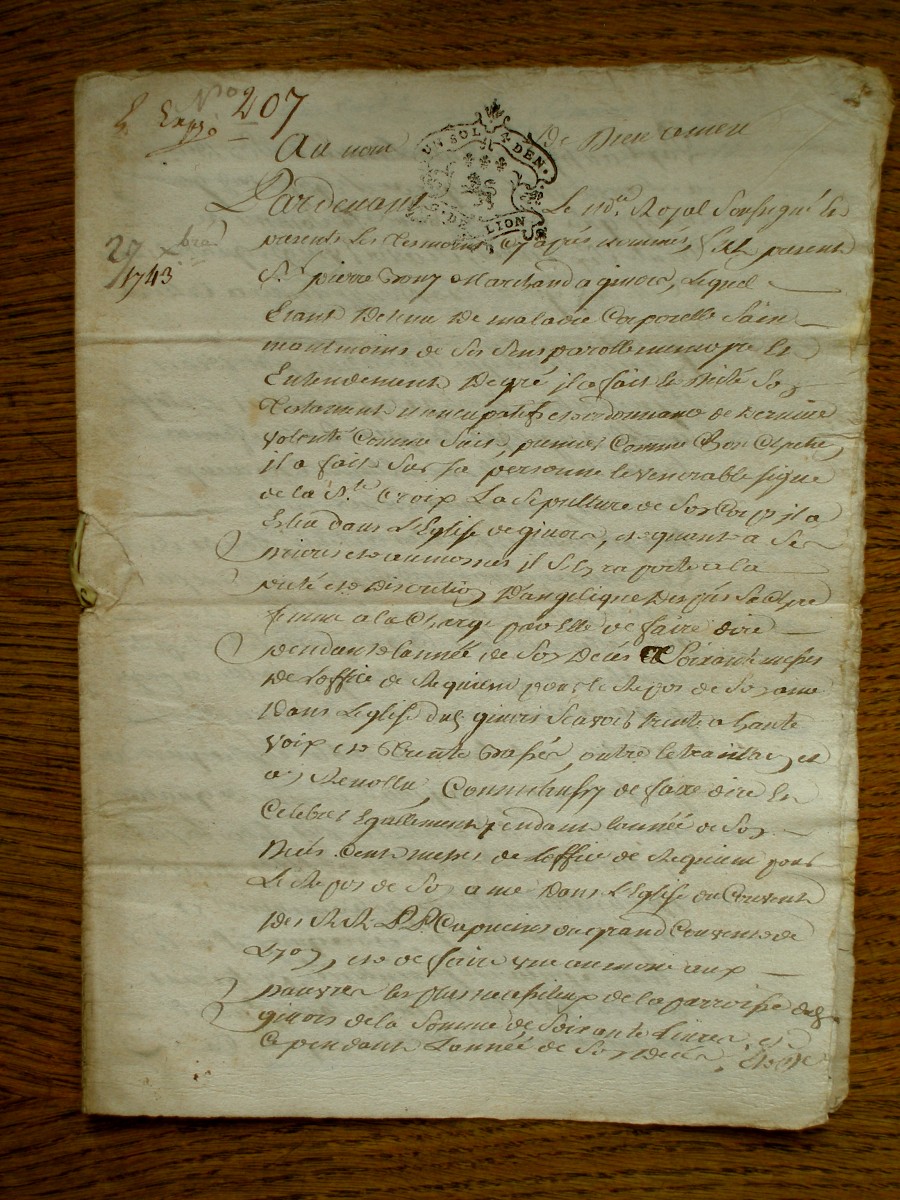 No 207
Exp.
Au nom De Dieu amen
UN SOL 4 DEN.
G. DE LION
27 bre 1743
Pardevant Le no.re Royal Soussigné le
presents les tesmoins cy après nommés, fut présent
Sr. pierre Marchand a givors, Lequel
Etant Detenu De maladie Corporelle Sain
neantmoins de Ses Sens parolle memoyre Et
Entendement De gré il a fait Et dicté Son
Testament nuncupatif et ordonnance de derniere
volonté Comme Suit, premier Comme Bon
il a fait Sur Sa personne le venerable signe
de la Ste. Croix La Sepulture de Son Corps il a
Esleu dans L'Eglise de givors, et quant a Ses
prieres et aumones il S'en raporte a la
pieté et Discretion D'angelique Sa
femme a la Charge par Elle de faire dire
pendant l'année de Son Deces Soixante messes
De l'office de Requiem pour le Repos de Son ame
Dans L'eglise dud. givors Scavoir trente a haute
voix et trente basses, outre le
de faire dire Et
Celebrer Egallement pendant l'année de Son
Deces Cent messes de l'office de Requiem pour
Le Repos de Son ame Dans L'Eglise du Couvent
Des R.R. P.P. Capucins du grand Couvent de
Lyon, et de faire une aumone aux
pauvres les plus necessiteux de la parroisse dud.
givors de la Somme de Soixante Livres et
Ce pendant L'année de Son Deces